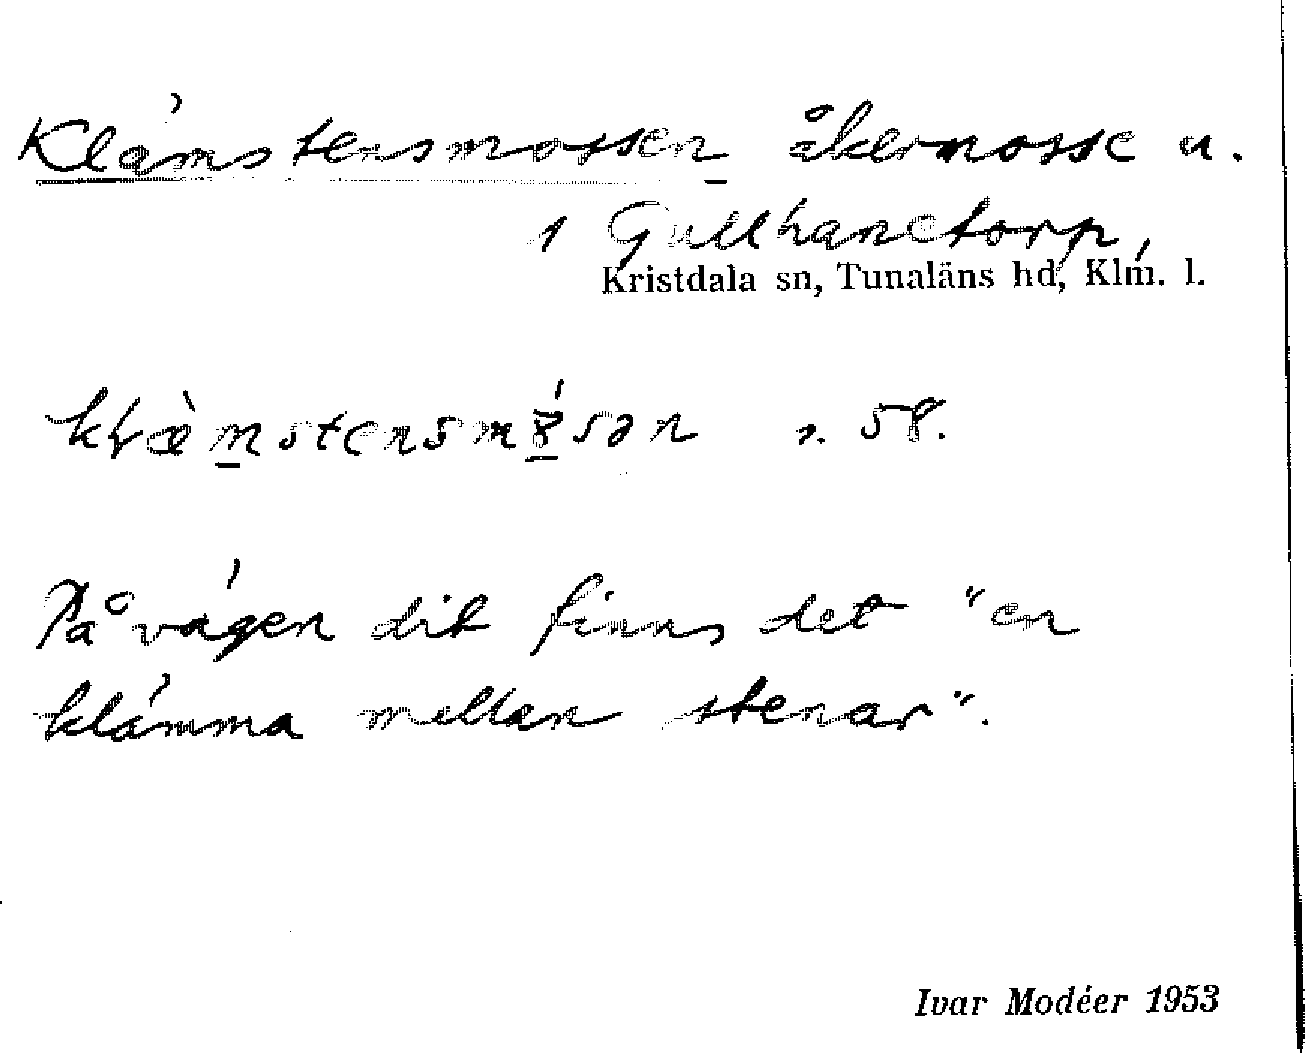 Klämstensmossen åkermosse u.
1 Gullhanetorp,
Kristdala sn, Tunaläns hd, Klm. l.
s. 58.
På vägen dit finns det "en
klämma mellan stenar".
Ivar Modéer 1953